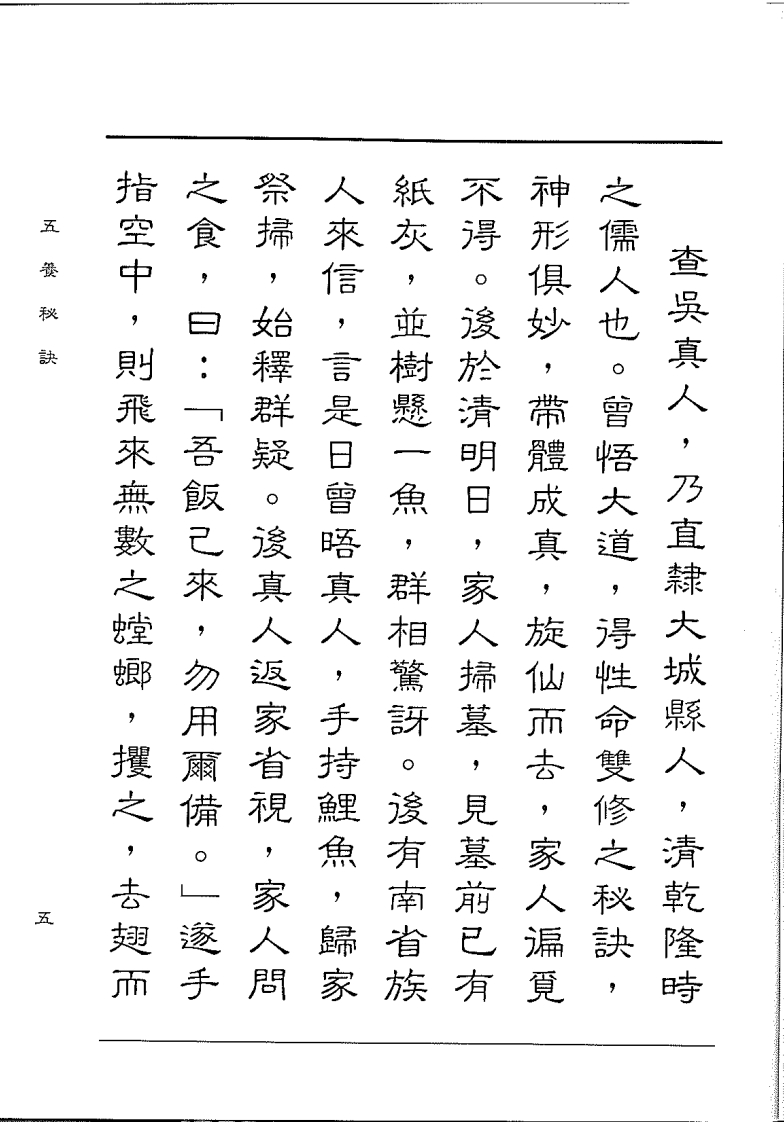 查吳真人，乃直隸大城縣人，清乾隆時
之儒人也。曾悟大道，得性命雙修之秘訣，
神形俱妙，帶體成真，旋仙而去，家人遍覓
不得。後於清明日，家人掃墓，見墓前已有
紙灰，並樹懸一魚，群相驚訝。後有南省族
人來信，言是日曾晤真人，手持鯉魚，歸家
祭掃，始釋群疑。後真人返家省視，家人問
之食，曰：「吾飯已來，勿用爾備。」遂手
指空中，則飛來無數之螳螂，攫之，去翅而
五養秘訣
五